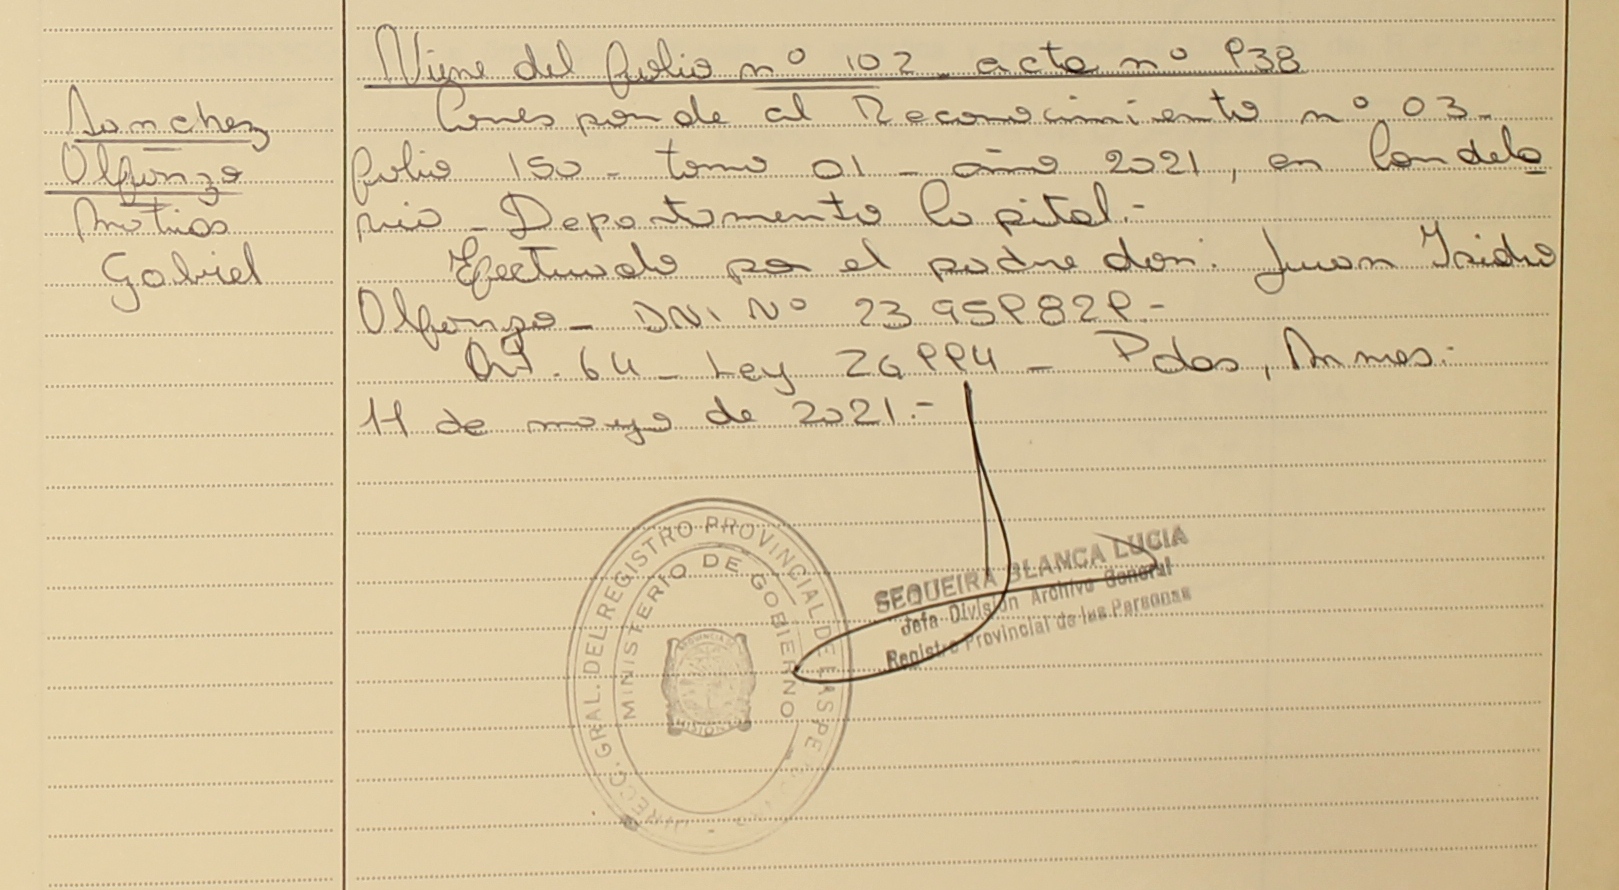 Sanchez
Olfonzo
Matias
Gabriel
Viene del folio nº 102 - acta nº 938
Corresponde al Reconocimiento nº 03-
folio 150 - tomo 01 - año 2021, en Candela
ria - Departamento Capital.-
Efectuado por el padre don: Juan Isidro
Olfonzo - DNI Nº 23 959829-
Art. 64 - Ley 26994 - Pdas, Mnes.-
11 de mayo de 2021.-
DIRECC. GRAL. DEL REGISTRO PROVINCIAL DE LAS PE
MINISTERIO DE GOBIERNO
PROVINCIA
MISIONES
SEQUEIRA BLANCA LUCIA
Jefa División Archivo General
Registro Provincial de las Personas